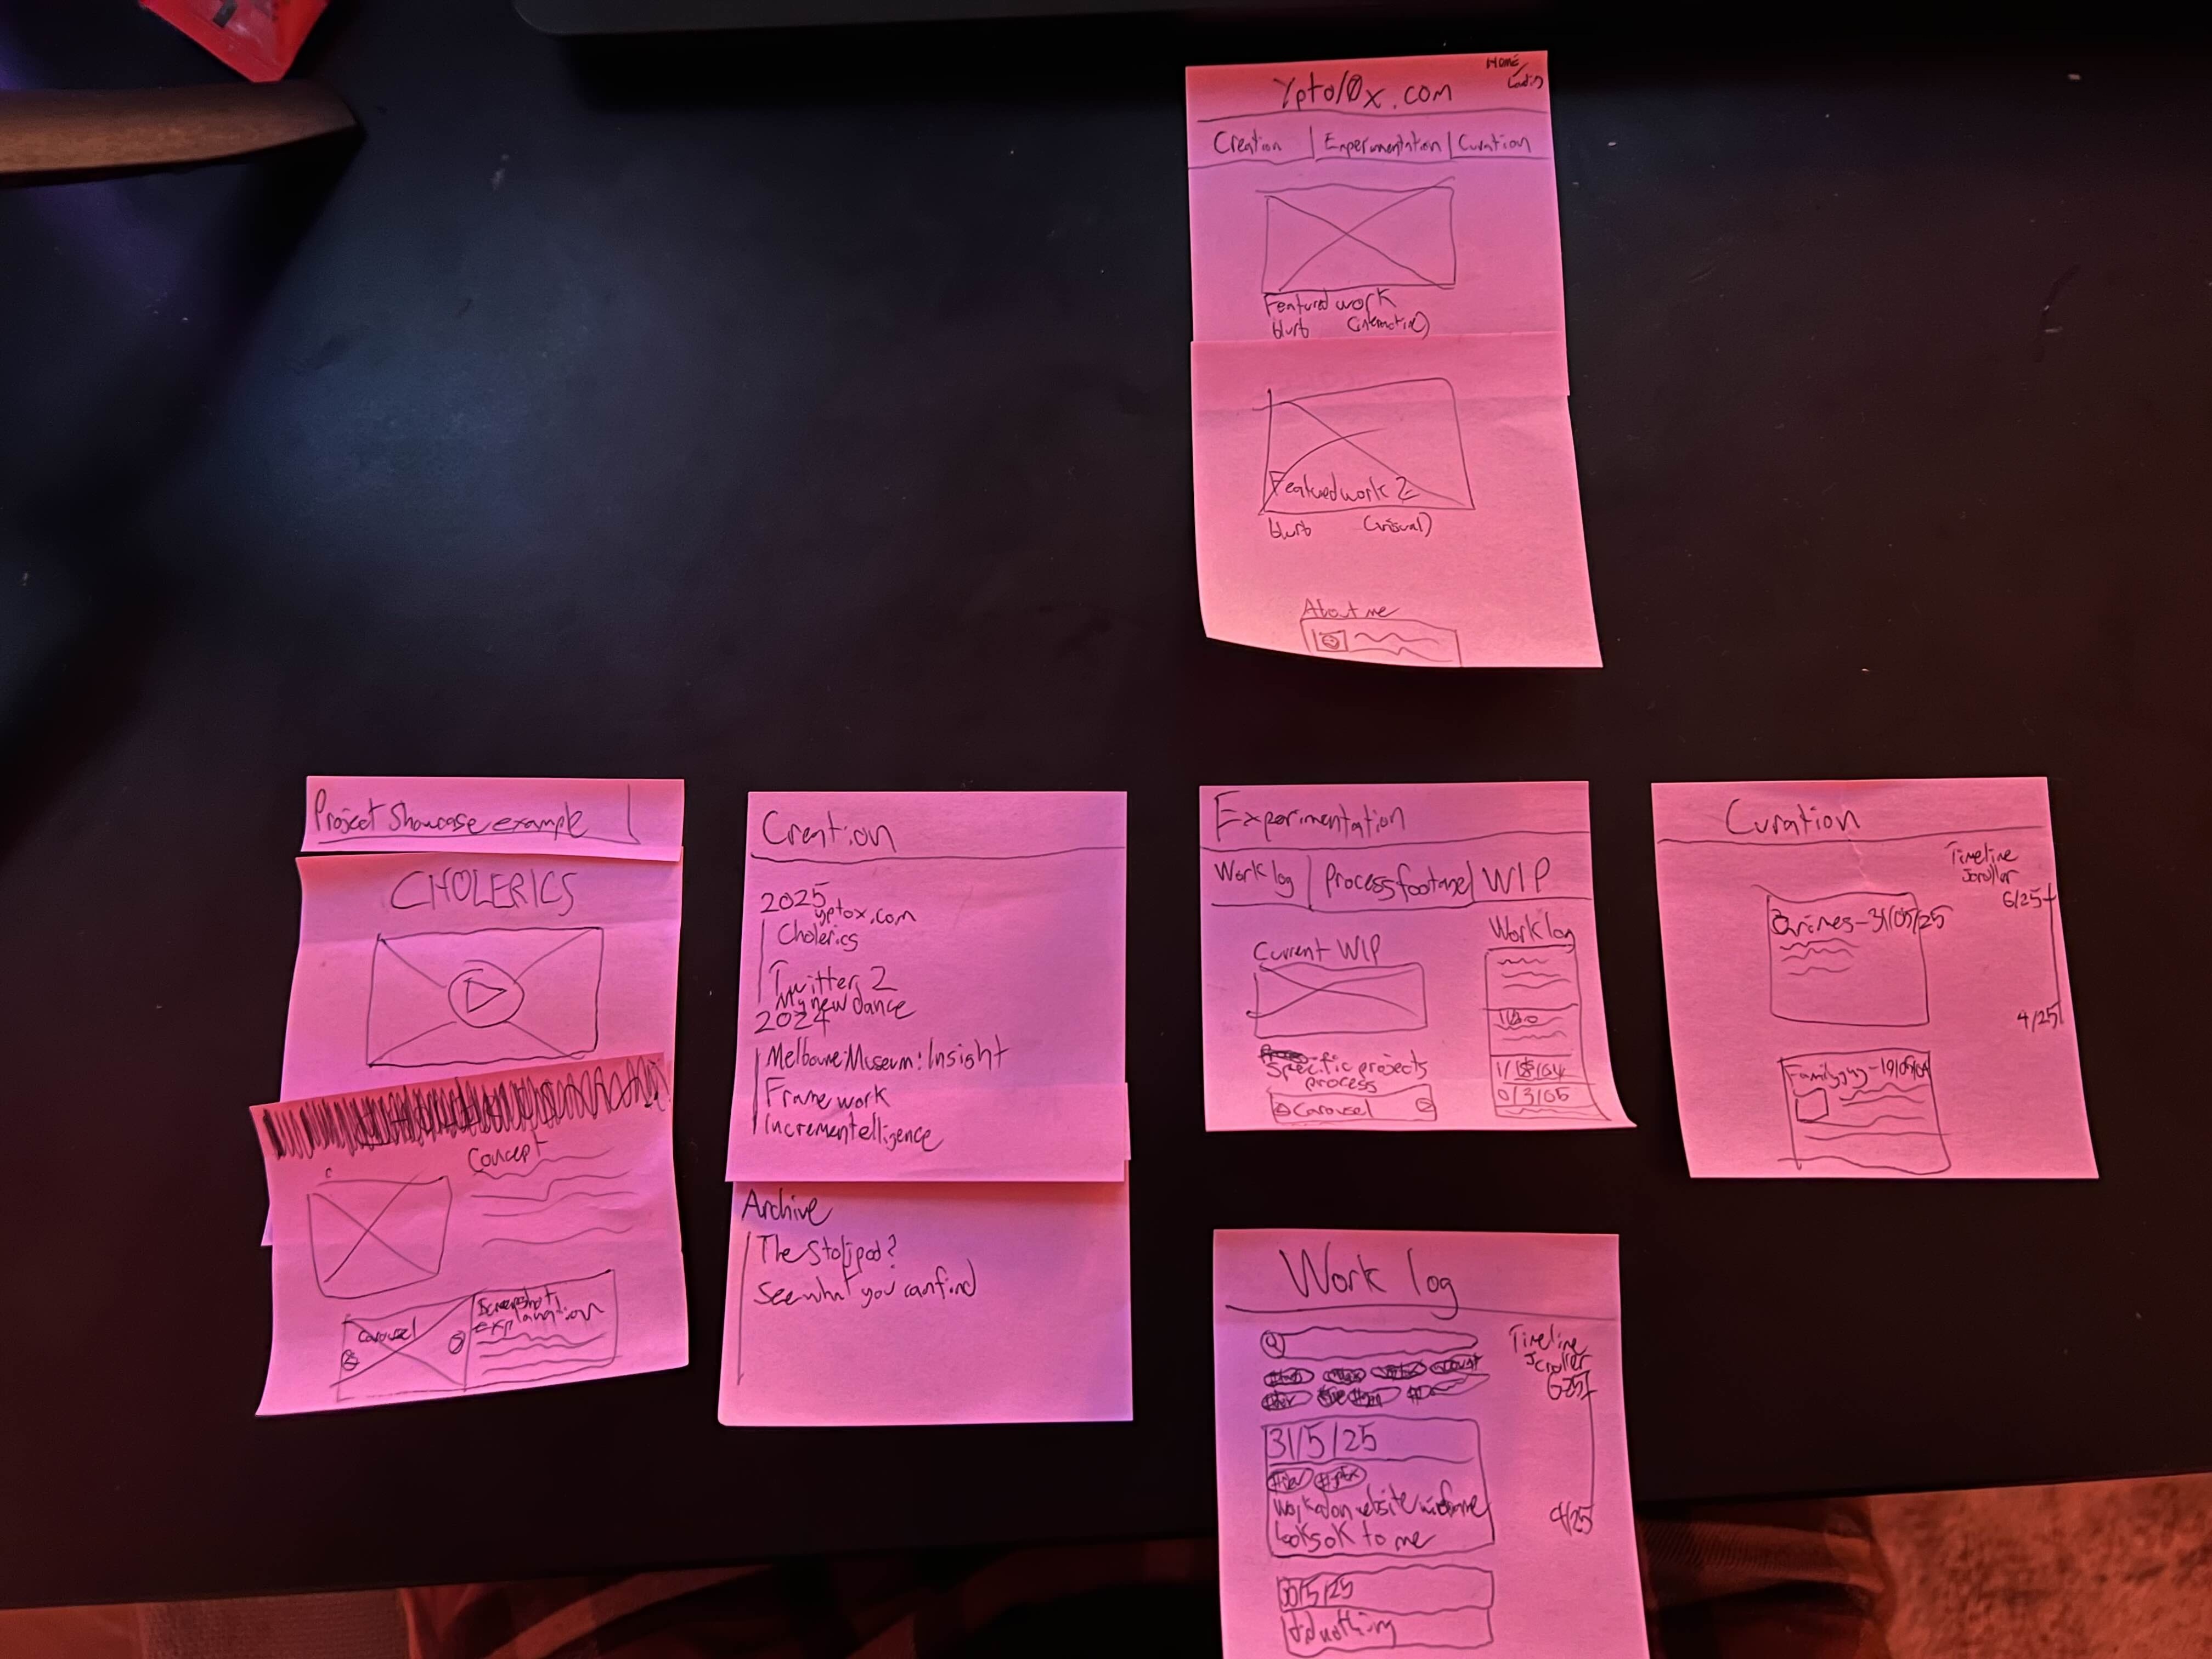 Home
.com
Creation | Experimentation | Curation
Featured work
blurb (cinematic)
Featured work 2
blurb (visual)
About me
Project Showcase example
CHOLERICS
Concept
Carousel
Screenshot
explanation
Creation
2025
yptox.com
Cholerics
Twitter 2
My new dance
2024
Melbourne Museum: Insight
Framework
Incrementelligence
Archive
The
See what you can find
Experimentation
Work log | Process footage | WIP
Current WIP
Work log
Specific projects
process
Carousel
Curation
Timeline
Scroller
6/25
4/25
-31/05/25
Family guy -
Work log
Timeline
Scroller
6/25
4/25
31/5/25
Worked on website wireframe
looks ok to me
30/5/25
Did nothing